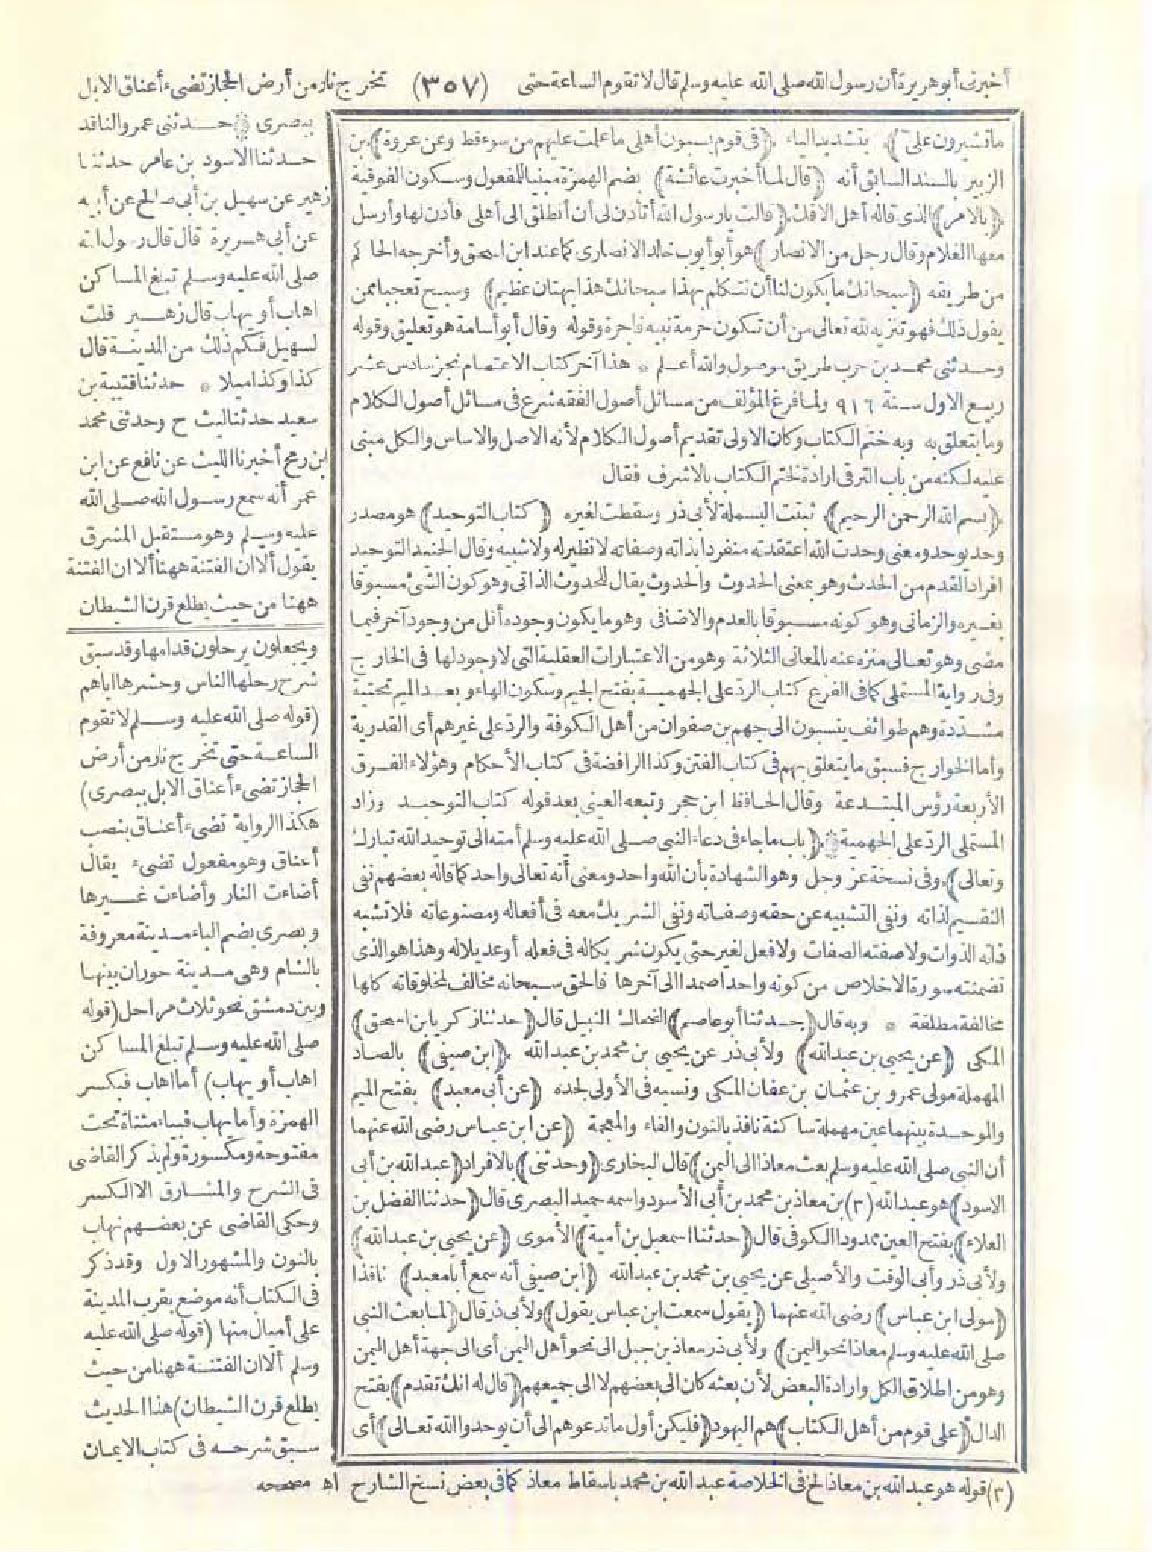 أخبرنى أبو هريرة أن رسول الله صلى الله عليه وسلم قال لا تقوم الساعة حتى (٣٥٧) تخرج نار من أرض الحجاز تضىء أعناق الابل
ما تشيرون علىّ) بتشديد الياء (فى قوم يسبون أهلى ما علمت عليهم من سوء قط وعن عروة) بن
الزبير بالسند السابق أنه (قال لما أخبرت عائشة) بضم الهمزة مبنيا للمفعول وسكون الفوقية
(بالامر) الذى قاله أهل الافك (قالت يا رسول الله أتأذن لى أن أنطلق الى أهلى فأذن لها وأرسل
معها الغلام وقال رجل من الانصار) هو أبو أيوب خالد الانصارى كما عند ابن اسحق وأخرجه الحاكم
من طريقه (سبحانك ما يكون لنا أن نتكلم بهذا سبحانك هذا بهتان عظيم) وسبح تعجبا ممن
يقول ذلك فهو تنزيه لله تعالى من أن تكون حرمة نبيه فاجرة وقوله وقال أبو أسامة هو تعليق وقوله
وحدثنى محمد بن حرب طريق موصول والله أعلم * هذا آخر كتاب الاعتصام نجز سادس عشر
ربيع الاول سنة ٩١٦ ولما فرغ المؤلف من مسائل أصول الفقه شرع فى مسائل أصول الكلام
وما يتعلق به وبه ختم الكتاب وكان الاولى تقديم أصول الكلام لأنه الاصل والاساس والكل مبنى
عليه لكنه من باب الترقى ارادة لختم الكتاب بالاشرف فقال
(بسم الله الرحمن الرحيم) ثبتت البسملة لأبى ذر وسقطت لغيره (كتاب التوحيد) هو مصدر
وحد يوحد ومعنى وحدت الله اعتقدته منفردا بذاته وصفاته لا نظير له ولا شبيه وقال الجنيد التوحيد
افراد القدم من الحدث وهو بمعنى الحدوث والحدوث يقال للحدوث الذاتى وهو كون الشئ مسبوقا
بغيره والزمانى وهو كونه مسبوقا بالعدم والاضافى وهو ما يكون وجوده أقل من وجود آخر فيما
مضى وهو تعالى منزه عنه بالمعانى الثلاثة وهو من الاعتبارات العقلية التى لا وجود لها فى الخارج
وفى رواية المستملى كما فى الفرع كتاب الرد على الجهمية بفتح الجيم وسكون الهاء وبعد الميم تحتية
مشددة وهم طوائف ينسبون الى جهم بن صفوان من أهل الكوفة والرد على غيرهم أى القدرية
وأما الخوارج فسبق ما يتعلق بهم فى كتاب الفتن وكذا الرافضة فى كتاب الأحكام وهؤلاء الفرق
الأربعة رؤس المبتدعة وقال الحافظ ابن حجر وتبعه العينى بعد قوله كتاب التوحيد وزاد
المستملى الرد على الجهمية (باب ما جاء فى دعاء النبى صلى الله عليه وسلم أمته الى توحيد الله تبارك
وتعالى) وفى نسخة عز وجل وهو الشهادة بأن الله واحد ومعنى أنه تعالى واحد كما قاله بعضهم نفى
التقسيم لذاته ونفى التشبيه عن حقه وصفاته ونفى الشريك معه فى أفعاله ومصنوعاته فلا تشبه
ذاته الذوات ولا صفته الصفات ولا فعل لغيره حتى يكون شريكا له فى فعله أو عديلا له وهذا هو الذى
تضمنته سورة الاخلاص من كونه واحدا صمدا الى آخرها فالحق سبحانه مخالف لمخلوقاته كلها
مخالفة مطلقة * وبه قال (حدثنا أبو عاصم) الضحاك النبيل قال (حدثنا زكريا بن اسحق)
المكى (عن يحيى بن عبد الله) ولأبى ذر عن يحيى بن محمد بن عبد الله (ابن صيفى) بالصاد
المهملة مولى عمرو بن عثمان بن عفان المكى ونسبه فى الأولى لجده (عن أبى معبد) بفتح الميم
والموحدة بينهما عين مهملة ساكنة نافذ بالنون والفاء والمعجمة (عن ابن عباس رضى الله عنهما
أن النبى صلى الله عليه وسلم بعث معاذا الى اليمن) قال البخارى (وحدثنى) بالافراد (عبد الله بن أبى
الاسود) هو عبد الله (٣) بن معاذ بن محمد بن أبى الأسود واسمه حميد البصرى قال (حدثنا الفضل بن
العلاء) بفتح العين ممدودا الكوفى قال (حدثنا اسمعيل بن أمية) الأموى (عن يحيى بن عبد الله)
ولأبى ذر وأبى الوقت والأصيلى عن يحيى بن محمد بن عبد الله (ابن صيفى أنه سمع أبا معبد) نافذا
(مولى ابن عباس) رضى الله عنهما (يقول سمعت ابن عباس يقول) ولأبى ذر قال (لما بعث النبى
صلى الله عليه وسلم معاذا نحو اليمن) ولأبى ذر معاذ بن جبل الى نحو أهل اليمن أى الى جهة أهل اليمن
وهو من اطلاق الكل وارادة البعض لأن بعثه كان الى بعضهم لا الى جميعهم (قال له انك تقدم) بفتح
الدال (على قوم من أهل الكتاب) هم اليهود (فليكن أول ما تدعوهم الى أن يوحدوا الله تعالى) أى
ببصرى * حدثنى عمرو الناقد
حدثنا الأسود بن عامر حدثنا
زهير عن سهيل بن أبى صالح عن أبيه
عن أبى هريرة قال قال رسول الله
صلى الله عليه وسلم تبلغ المساكن
اهاب أو يهاب قال زهير قلت
لسهيل فكم ذلك من المدينة قال
كذا وكذا ميلا * حدثنا قتيبة بن
سعيد حدثنا ليث ح وحدثنى محمد
ابن رمح أخبرنا الليث عن نافع عن ابن
عمر أنه سمع رسول الله صلى الله
عليه وسلم وهو مستقبل المشرق
يقول ألا ان الفتنة ههنا ألا ان الفتنة
ههنا من حيث يطلع قرن الشيطان
ويجعلون يرحلون قدامها وقد سبق
شرح رحلها الناس وحشرها اياهم
(قوله صلى الله عليه وسلم لا تقوم
الساعة حتى تخرج نار من أرض
الحجاز تضىء أعناق الابل ببصرى)
هكذا الرواية تضىء أعناق بنصب
أعناق وهو مفعول تضىء يقال
أضاءت النار وأضاءت غيرها
وبصرى بضم الباء مدينة معروفة
بالشام وهى مدينة حوران بينها
وبين دمشق نحو ثلاث مراحل (قوله
صلى الله عليه وسلم تبلغ المساكن
اهاب أو يهاب) أما اهاب فبكسر
الهمزة وأما يهاب فبياء مثناة تحت
مفتوحة ومكسورة ولم يذكر القاضى
فى الشرح والمشارق الا الكسر
وحكى القاضى عن بعضهم نهاب
بالنون والمشهور الاول وقد ذكر
فى الكتاب أنه موضع بقرب المدينة
على أميال منها (قوله صلى الله عليه
وسلم ألا ان الفتنة ههنا من حيث
يطلع قرن الشيطان) هذا الحديث
سبق شرحه فى كتاب الايمان
(٣) قوله هو عبد الله بن معاذ الخ فى الخلاصة عبد الله بن محمد باسقاط معاذ كما فى بعض نسخ الشارح اه مصححه